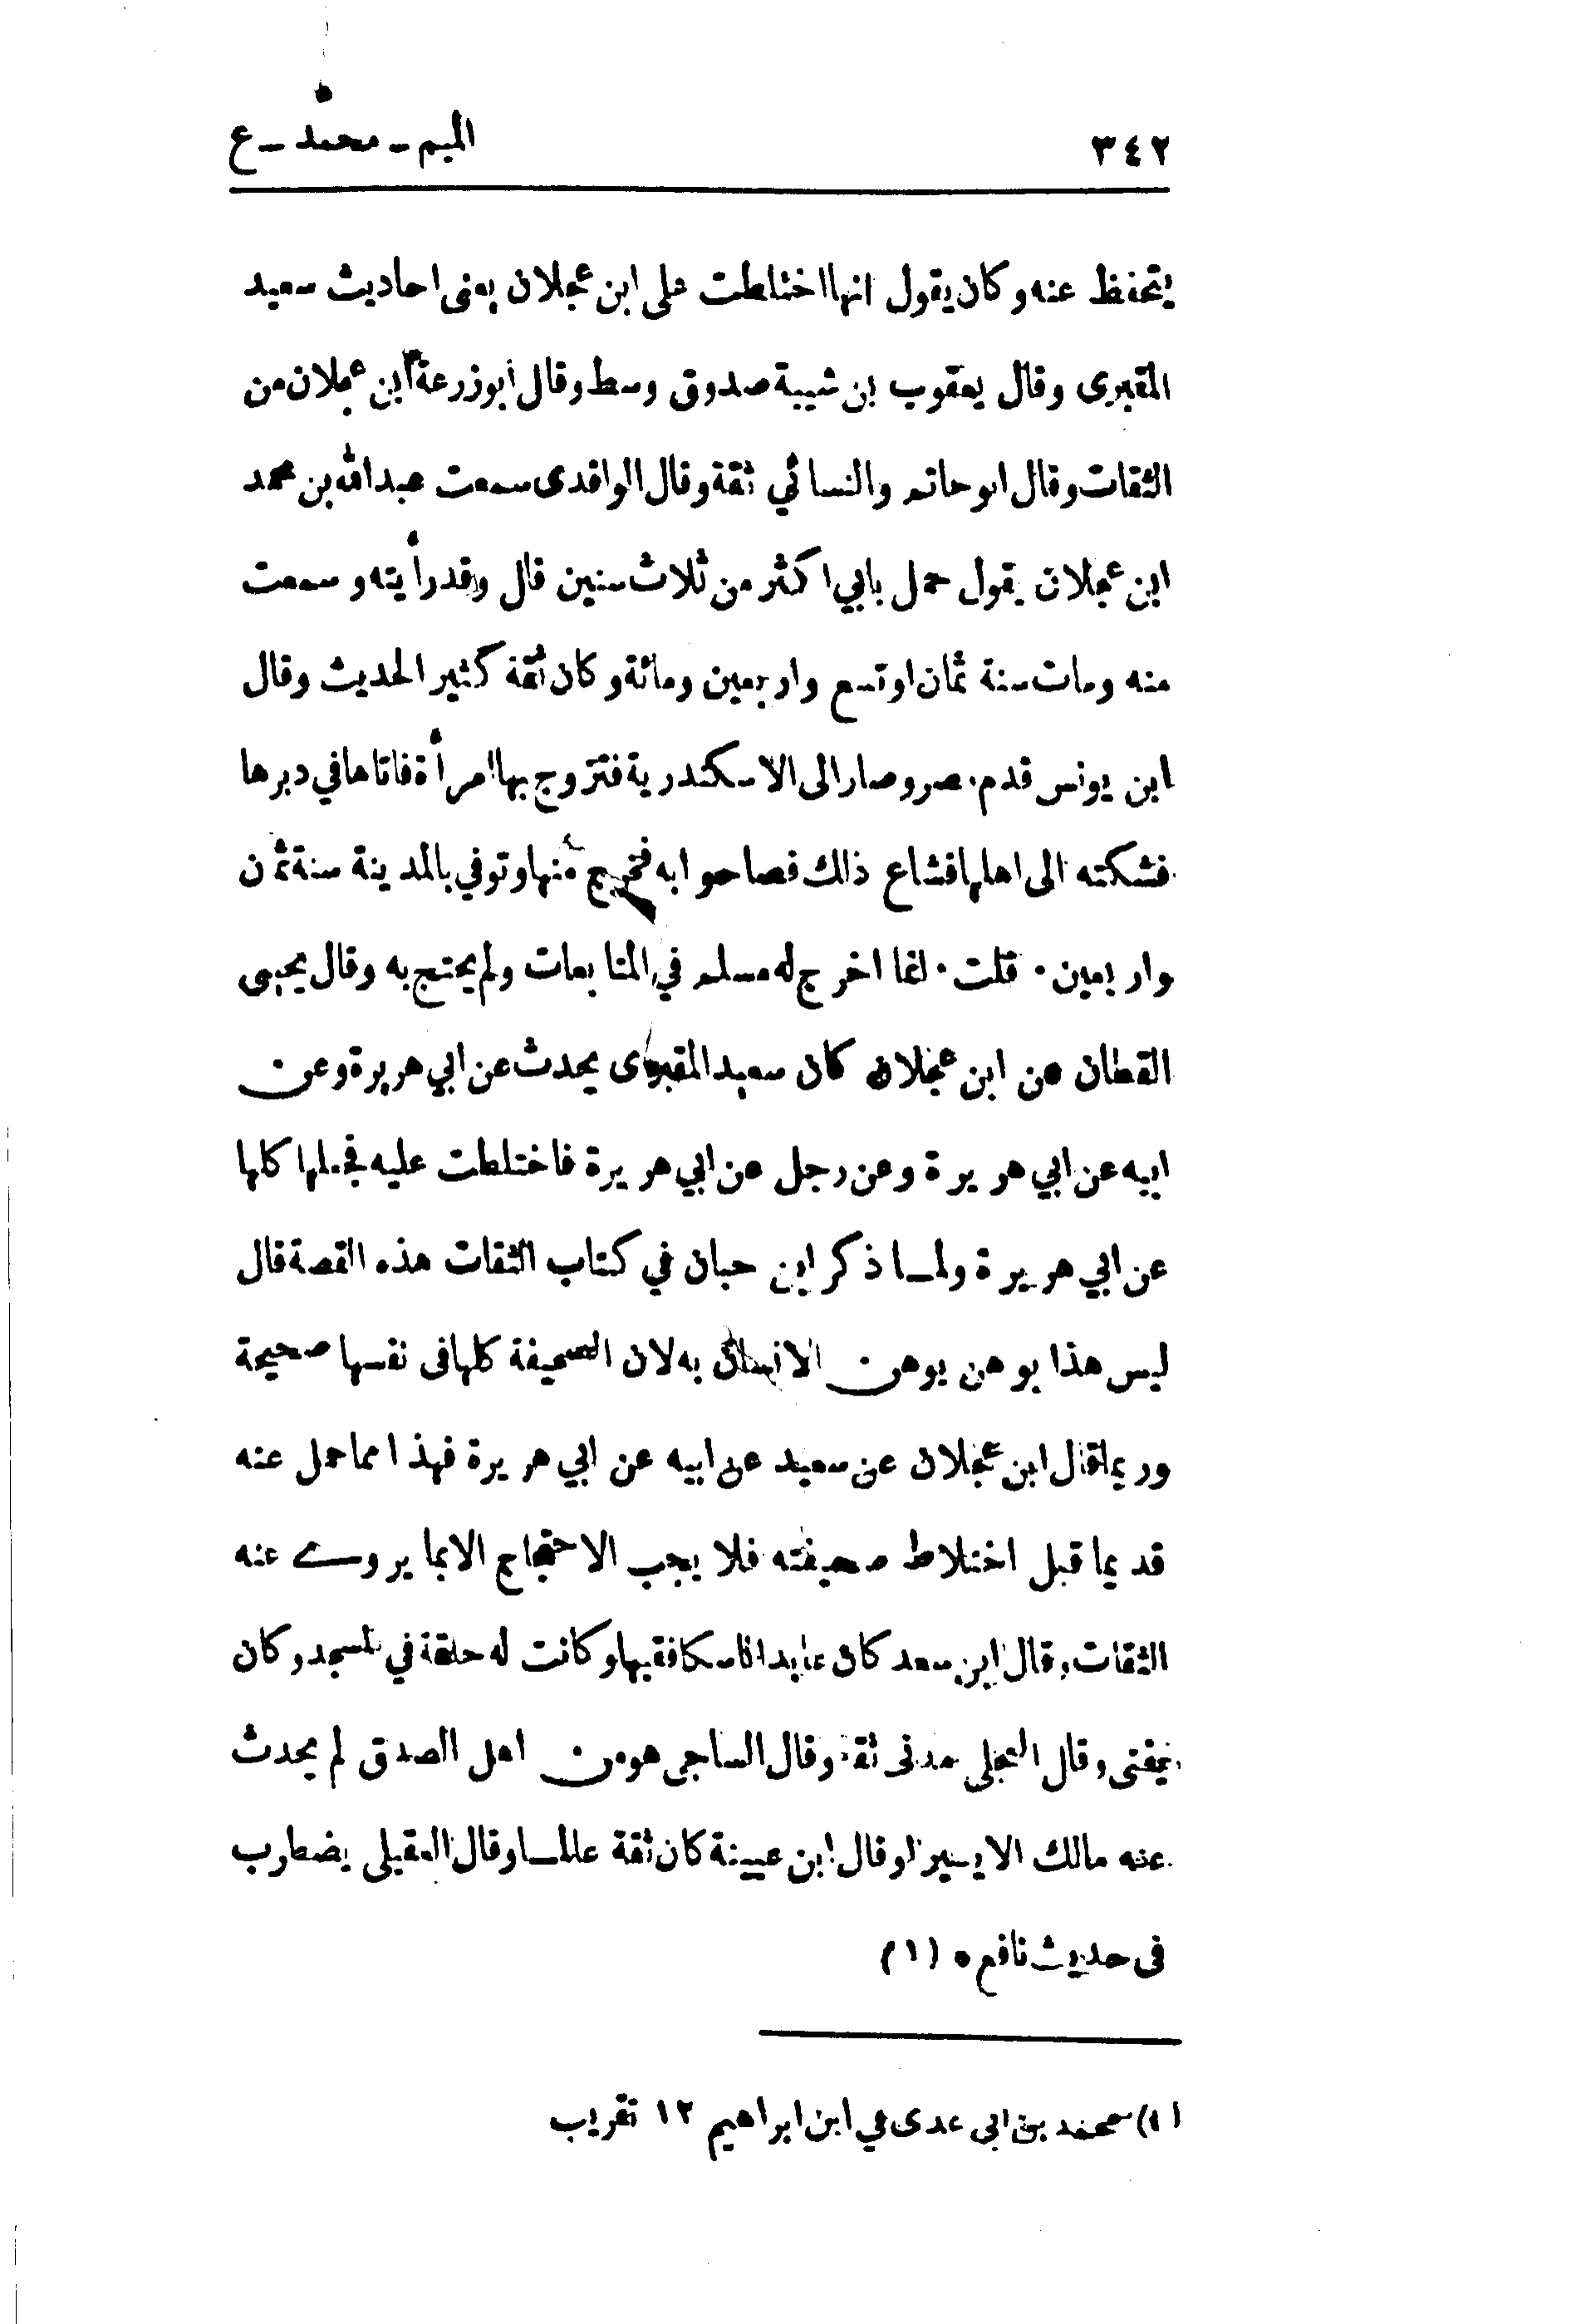 ٣٤٢
الميم - محمد - ع
يتحفظ عنه وكان يقول انها اختلطت على ابن عجلان يعنى احاديث سعيد
المقبرى وقال يعقوب بن شيبة صدوق وسط وقال أبو زرعة ابن عجلان من
الثقات وقال ابو حاتم والنسائي ثقة وقال الواقدى سمعت عبدالله بن محمد
ابن عجلان يقول حمل بابي اكثر من ثلاث سنين قال وقد رأيته وسمعت
منه ومات سنة ثمان اوتسع واربعين ومائة وكان ثقة كثير الحديث وقال
ابن يونس قدم مصر وصار الى الاسكندرية فتزوج بها امرأة فاتاها في دبرها
فشكته الى اهلها فشاع ذلك فصاحوا به فخرج منها وتوفي بالمدينة سنة ثمن
واربعين ٠ قلت ٠ انما اخرج له مسلم في المتابعات ولم يحتج به وقال يحيى
القطان عن ابن عجلان كان سعيد المقبرى يحدث عن ابي هريرة وعن
ابيه عن ابي هريرة وعن رجل عن ابي هريرة فاختلطت عليه فجعلها كلها
عن ابي هريرة ولما ذكر ابن حبان في كتاب الثقات هذه القصة قال
ليس هذا بوهن يوهن الانسان به لان الصحيفة كلها فى نفسها صحيحة
وربما قال ابن عجلان عن سعيد عن ابيه عن ابي هريرة فهذا مما حمل عنه
قديما قبل اختلاط صحيفته فلا يجب الاحتجاج الا بما يروے عنه
الثقات وقال ابن سعد كان عابدا ناسكا فقيها وكانت له حلقة في المسجد وكان
يفتى وقال العجلى مدنى ثقة وقال الساجى هو من اهل الصدق لم يحدث
عنه مالك الا يسيرا وقال ابن عيينة كان ثقة عالما وقال العقيلى يضطرب
فى حديث نافع ٥ (١)
(١) محمد بن ابى عدى في ابن ابراهيم ١٢ تقريب